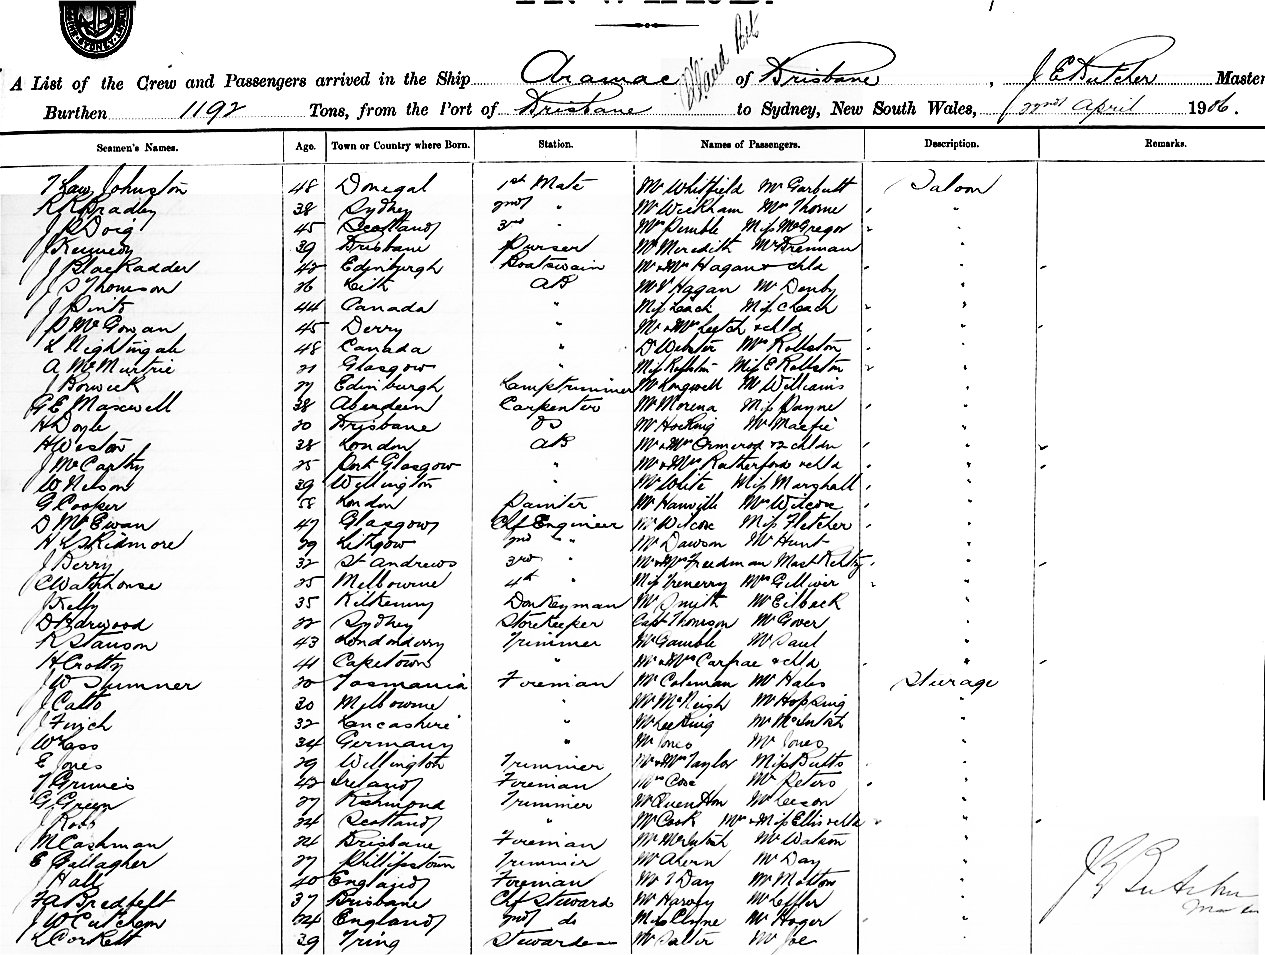 SYDNEY
INWARD.
Island Port
A List of the Crew and Passengers arrived in the Ship Aramac of Brisbane, J E Butcher Master
Burthen 1192 Tons, from the Port of Brisbane to Sydney, New South Wales, 22nd April 1906.
Seamen's Names. Age. Town or Country where Born. Station. Names of Passengers. Description. Remarks.
T Law Johnston 48 Donegal 1st Mate Mr Whitfield Mr Garbutt Saloon
R R Bradley 38 Sydney 2nd " Mr Wickham Mrs Thorne "
J R Doig 45 Scotland 3rd " Mrs Pemble Miss McGregor "
J Kennedy 39 Brisbane Purser Mr Meredith Mr Brennan "
J Blackadder 42 Edinburgh Boatswain Mr & Mrs Hagan & chld "
J S Thomson 26 Leith AB Mr Hagan Mr Denby "
J Pink 44 Canada " Miss Leach Miss C Leach "
P McGowan 45 Derry " Mr & Mrs Leetch & chld "
L Nightingale 48 Canada " Dr Webster Mrs Rolleston "
A McMurtrie 21 Glasgow " Miss Rolleston Miss E Rolleston "
J Borwick 27 Edinburgh Lamptrimmer Mr Longwell Mr Williams "
G E Maxwell 38 Aberdeen Carpenter Mr Morena Miss Payne "
H Doyle 20 Brisbane OS Mr Hocking Mr Macfie "
H Weston 28 London AB Mr & Mrs Ormerod & 2 chldn "
J McCarthy 25 Port Glasgow " Mr & Mrs Rutherford & chld "
W Nelson 39 Wellington " Mr White Miss Marshall "
G Cooper 58 London Painter Mr Hanville Mrs Wilcox "
D McEwan 47 Glasgow Chf Engineer Mr Wilcox Miss Fletcher "
H L Skidmore 29 Lithgow 2nd " Mr Dawson Mr Hunt "
J Berry 32 St Andrews 3rd " Mr & Mrs Freedman Mast "
C Waterhouse 25 Melbourne 4th " Miss Trenerry Mrs Gilliver "
J Kelly 35 Kilkenny Donkeyman Mr Smith Mr Eilbeck "
D Harwood 22 Sydney Storekeeper Capt Thomson Mr Gover "
R Stauson 43 Londonderry Trimmer Mr Gamble Mr Saul "
H Crotty 41 Capetown " Mr & Mrs Carfrae & chld "
J W Sumner 20 Tasmania Fireman Mr Coleman Mr Hales Sturage
J Catto 30 Melbourne " Mr McNeigh Mr Hopking "
J Finch 32 Lancashire " Mr Lee King Mr McIntosh "
W Lass 34 Germany " Mr Jones Mr Jones "
E Jones 29 Wellington Trimmer Mr & Mrs Taylor Miss Butts "
T Grimes 42 Ireland Fireman Mrs Cox Mr Peters "
G Green 27 Richmond Trimmer Mr Quen Hon Mr Leeson "
J Ross 24 Scotland " Mr Cook Mrs & Miss Ellis & chld "
M Cashman 24 Brisbane Fireman Mr McIntosh Mr Watson "
E Gallagher 27 Phillipstown Trimmer Mr Ahern Mr Day "
J Hall 40 England Fireman Mr T Day Mr Molton "
F A Bredfelt 37 Brisbane Chf Steward Mr Harvey Mr Leffler "
J W Cutchem 24 England 2nd do Miss Clyne Mr Hoger "
L Corkett 39 Tring Stewardess Mr Salter Mr Joe "
J E Butcher
Master